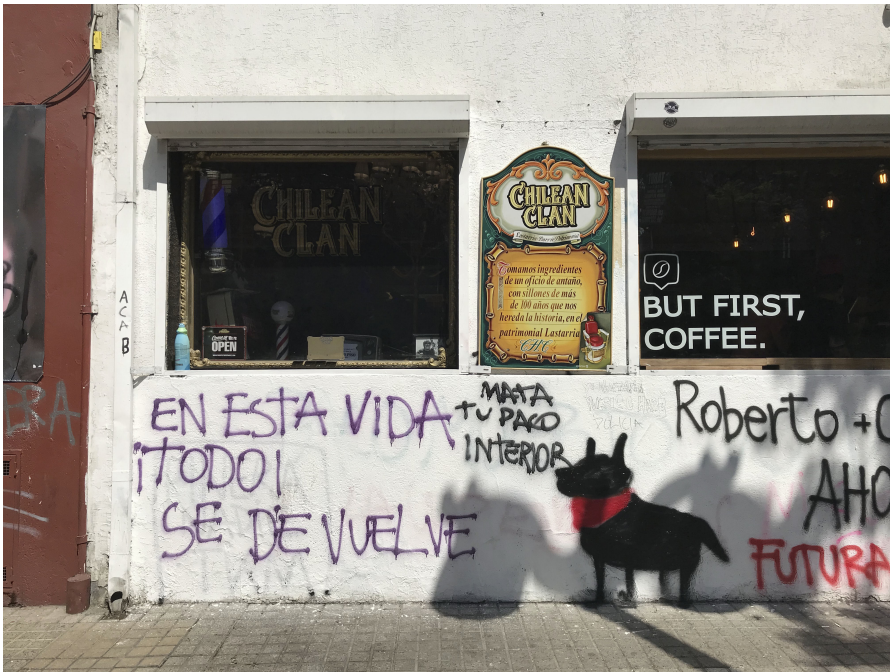 CHILEAN
CLAN
COME IN WE'RE
OPEN
CHILEAN
CLAN
Tomamos ingredientes
de un oficio de antaño,
con sillones de más
de 100 años que nos
hereda la historia, en el
patrimonial Lastarria
BUT FIRST,
COFFEE.
A
C
A
B
EN ESTA VIDA
¡TODO!
SE DEVUELVE
MATA
TU PACO
INTERIOR
Roberto +
AHO
FUTURA